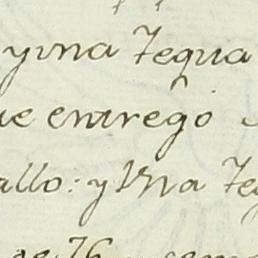 y vna Yegua
ue entregó
allo: y Vna Yeg
de 76